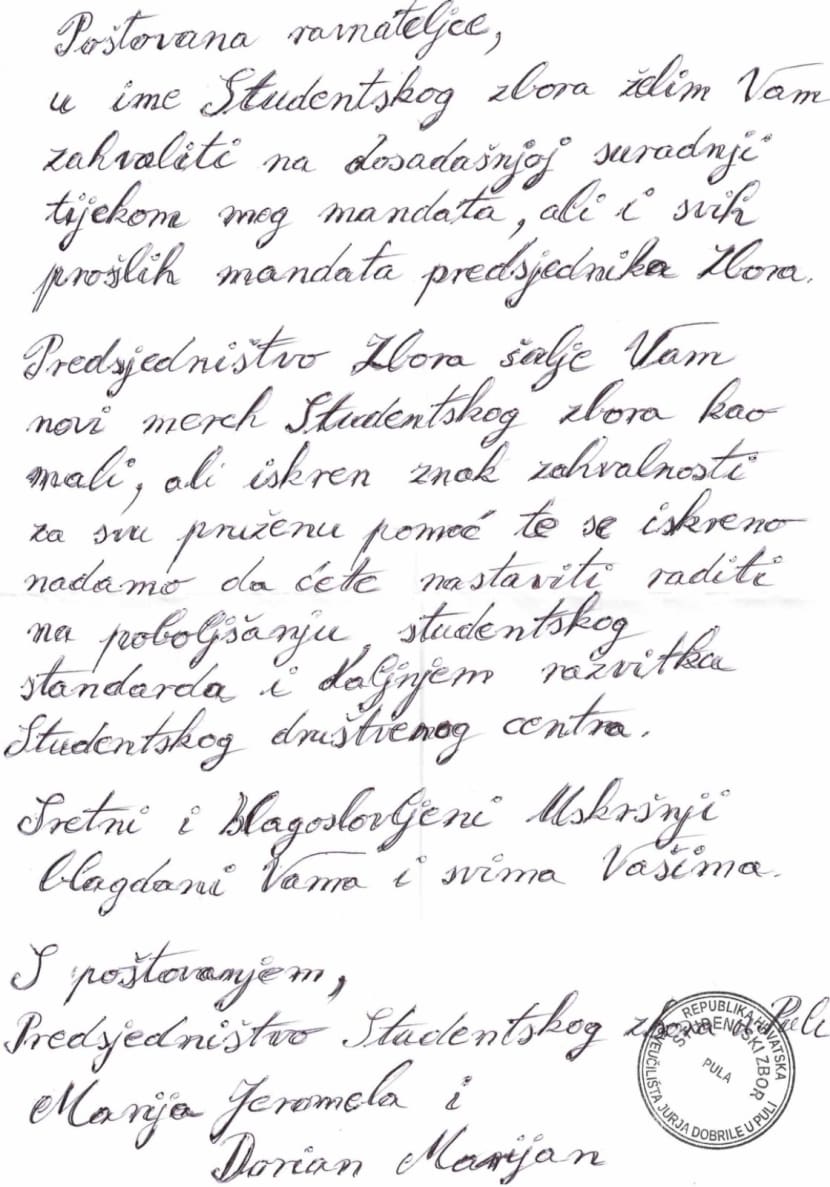 Poštovana ravnateljce,
u ime Studentskog zbora želim Vam
zahvaliti na dosadašnjoj suradnji
tijekom meg mandata, ali i svih
prošlih mandata predsjednika Zbora.
Predsjedništvo Zbora šalje Vam
novi merch Studentskog zbora kao
mali, ali iskren znak zahvalnosti
za svu pruženu pomoć te se iskreno
nadamo da ćete nastaviti raditi
na poboljšanju studentskog
standarda i daljnjem razvitku
Studentskog društvenog centra.
Sretni i Blagoslovljeni Uskršnji
blagdani Vama i svima Vašima.
S poštovanjem,
Predsjedništvo Studentskog zbora u Puli
Marija Jeromela i
Dorian Marijan
REPUBLIKA HRVATSKA
STUDENTSKI ZBOR
PULA
SVEUČILIŠTA JURJA DOBRILE U PULI